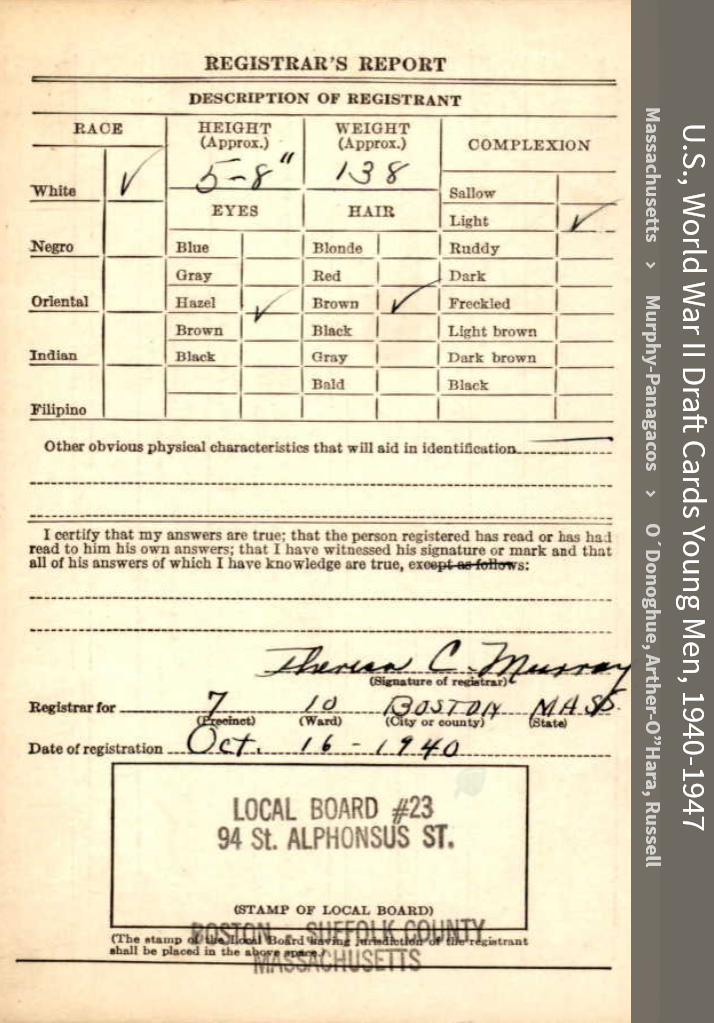 REGISTRAR'S REPORT
DESCRIPTION OF REGISTRANT
RACE
HEIGHT (Approx.)
WEIGHT (Approx.)
COMPLEXION
5-8"
138
White ✓
Sallow
EYES
HAIR
Light ✓
Negro
Blue
Blonde
Ruddy
Gray
Red
Dark
Oriental
Hazel ✓
Brown ✓
Freckled
Brown
Black
Light brown
Indian
Black
Gray
Dark brown
Bald
Black
Filipino
Other obvious physical characteristics that will aid in identification
I certify that my answers are true; that the person registered has read or has had
read to him his own answers; that I have witnessed his signature or mark and that
all of his answers of which I have knowledge are true, except as follows:
Theresa C. Murray
(Signature of registrar)
Registrar for 7 10 BOSTON MASS.
(Precinct) (Ward) (City or county) (State)
Date of registration Oct. 16 - 1940
LOCAL BOARD #23
94 St. ALPHONSUS ST.
(STAMP OF LOCAL BOARD)
BOSTON - SUFFOLK COUNTY
(The stamp of the Local Board having jurisdiction of the registrant
shall be placed in the above space.)
MASSACHUSETTS
U.S., World War II Draft Cards Young Men, 1940-1947
Massachusetts > Murphy-Panagacos > O´Donoghue, Arther-O"Hara, Russell